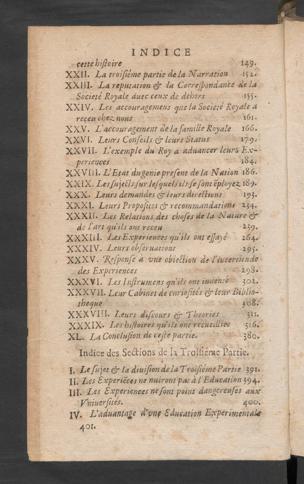 INDICE
cette histoire 149.
XXII. La troisiéme partie de la Narration 152.
XXIII. La reputation & la Correspondance de la
Societé Royale auec ceux de dehors 155.
XXIV. Les accouragemens que la Societé Royale a
receu chez nous 161.
XXV. L'accouragement de la famille Royale 166.
XXVI. Leurs Conseils & leurs Statuts 179.
XXVII. L'exemple du Roy a aduancer leurs Ex-
periences 184.
XXVIII. L'Etat du genie present de la Nation 186.
XXIX. Les sujets sur lesquels ils se sont employez 189.
XXX. Leurs demandes & leurs directions 195.
XXXI. Leurs Proposites & recommandations 234.
XXXII. Les Relations des choses de la Nature &
de l'art qu'ils ont receu 239.
XXXIII. Les Experiences qu'ils ont essayé 264.
XXXIV. Leurs obseruations 295.
XXXV. Response a vne obiection de l'incertitude
des Experiences 298.
XXXVI. Les Instrumens qu'ils ont inuenté 302.
XXXVII. Leur Cabinet de curiosités & leur Biblio-
theque 308.
XXXVIII. Leurs discours & Theories 311.
XXXIX. Les histoires qu'ils ont recueillies 316.
XL. La Conclusion de cete partie. 380.
Indice des Sections de la Troisiéme Partie.
I. Le sujet & la diuision de la Troisiéme Partie 391.
II. Les Experiéces ne nuiront pas à l'Education 394.
III. Les Experiences ne sont point dangereuses aux
Vniuersités. 400.
IV. L'aduantage d'vne Education Experimentale
401.